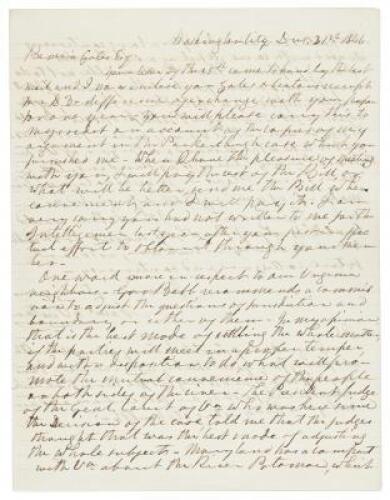 Washington City Dec. 21st 1846
Esq.
your letter of the 15th came to hand by the last
mail and I now enclose you Gales & Seatons receipt
for a year. You will please carry this to
my credit on account of the copies of my
argument in the case which you
furnished me. When I have the pleasure of meeting
with you, I will pay the rest of the Bill, or
what will be better, send me the Bill when
convenient, and I will pay it. I am
very sorry you had not written to me for the
Intelligencer last year after your
effort to obtain it through your
One word more in respect to our Virginia
neighbors. Gov recommends a
to adjust the questions of jurisdiction and
boundary, or either of them. In my opinion
that is the best mode of settling the whole matter
if the parties will meet in a proper temper
and with a disposition to do what will pro-
mote the mutual convenience of the people
on both sides of the river. The President Judge
of the Genl. Court of Va. who was here since
the decision of the case told me that the judges
thought that was the best mode of adjusting
the whole subject. Maryland has a compact
with Va. about the River Potomac, which